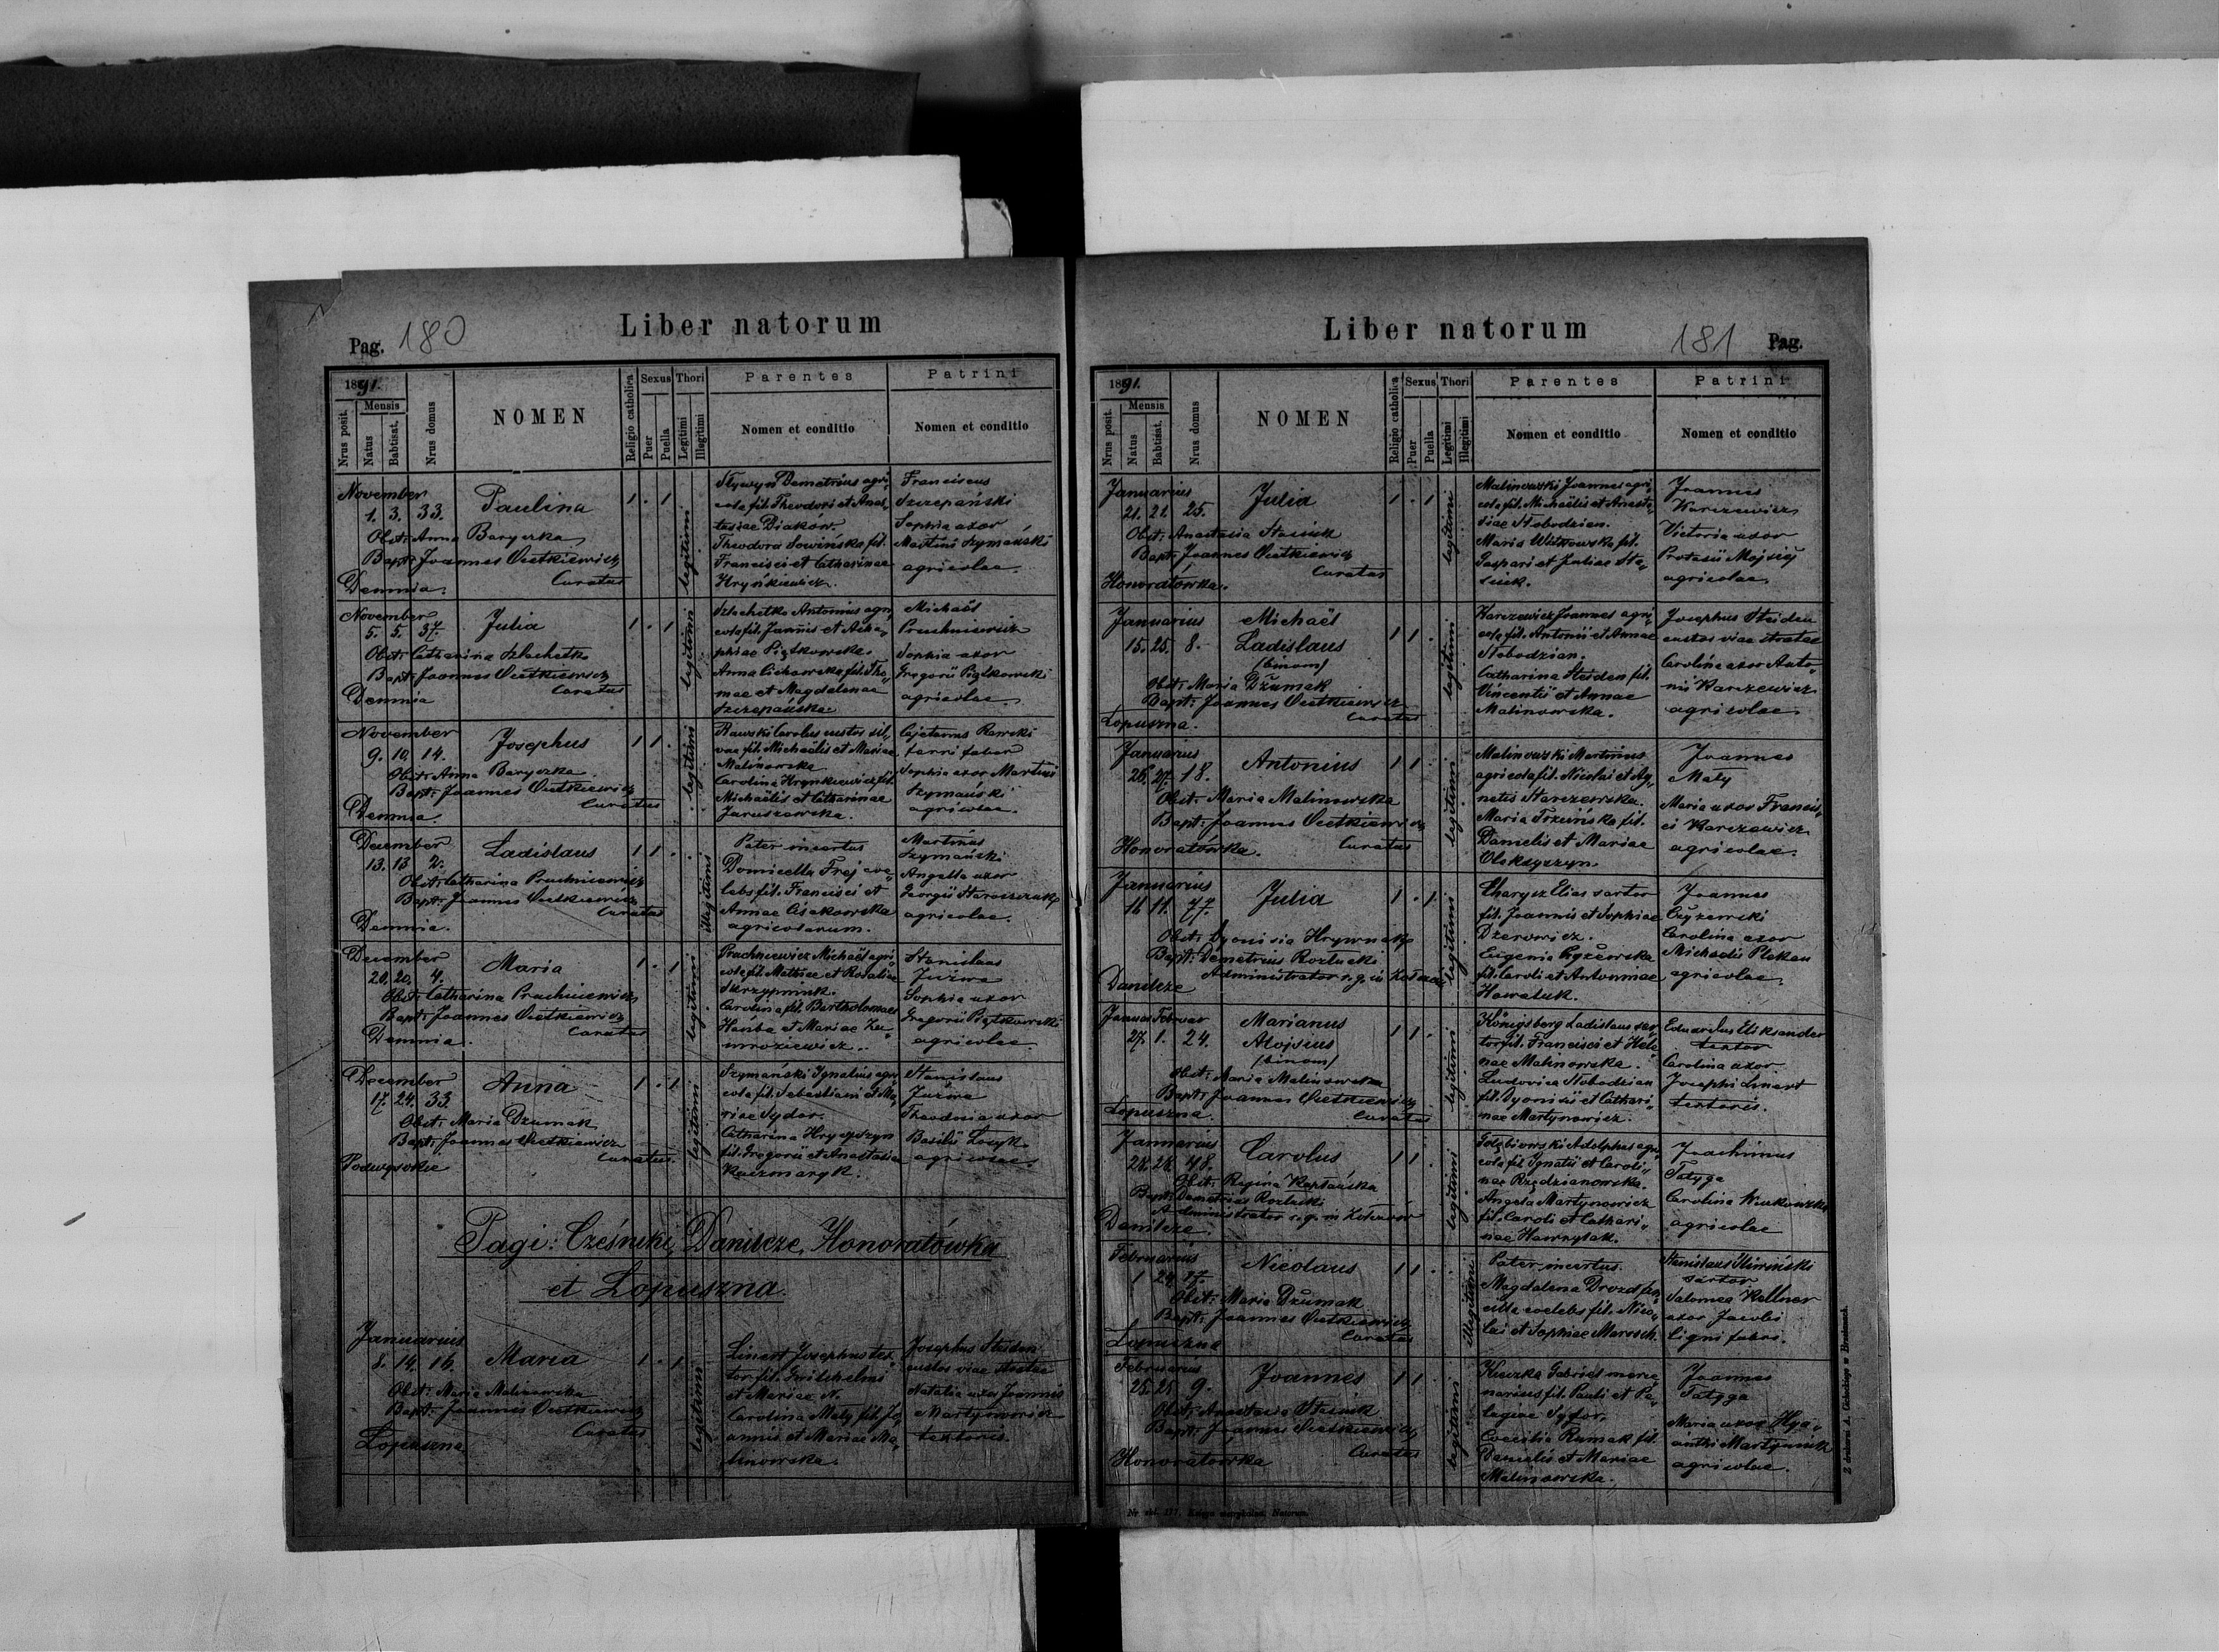 Liber natorum
Pag. 180
1891.
Mensis
Nrus posit.
Natus
Babtisat.
Nrus domus
NOMEN
Religio catholica
Sexus
Puer
Puella
Thori
Legitimi
Illegitimi
Parentes
Nomen et conditio
Patrini
Nomen et conditio
November
1. 3. 33. Paulina 1 . 1
Obst: Anna Baryczka
Bapt: Joannes
Curatus
Demnia.
legitimi
Demetrius agri„
cola fil. Theodori et Anas„
tasiae Diaków.
Theodora Sowińska fil.
Francisci et Catharinae
Hryńkiewicz.
Franciscus
Szczepański
Sophia uxor
Martini Szymański
agricolae.
November
5. 5. 37. Julia 1 . 1
Obst: Catharina Szlachetko
Bapt: Joannes
Curatus
Demnia
legitimi
Szlachetko Antonius agri„
cola fil. Joannis et Aga„
phiae Piątkowska.
Anna Cichowska fil. Tho„
mae et Magdalenae
Szczepańska.
Michaël
Prochniewicz
Sophia uxor
Gregorii Piątkowski
agricolae.
November
9. 10. 14. Josephus 1 1 .
Obst: Anna Baryczka
Bapt: Joannes
Curatus
Demnia.
legitimi
Rawski Carolus custos sil„
vae fil. Michaëlis et Mariae
Malinowska
Carolina Hrynkiewicz fil.
Michaëlis et Catharinae
Jaruszowska.
Cajetanus Rawski
ferri faber
Sophia uxor Martini
Szymański
agricolae.
December
13. 13. 2. Ladislaus 1 1 .
Obst: Catharina Prochniewicz
Bapt: Joannes
Curatus
Demnia.
illegitimi
Pater incertus
Domicella Frej coe„
lebs fil. Francisci et
Annae
agricolarum.
Martinus
Szymański
Angella uxor
Georgii
agricolae.
December
20. 20. 4. Maria 1 . 1
Obst: Catharina Prochniewicz
Bapt: Joannes
Curatus
Demnia.
legitimi
Prochniewicz Michaël agri„
cola fil. Mathiae et Rosaliae
Skrzypnink.
Carolina fil. Bartholomaei
Hańba et Mariae
Stanislaus
Juźwa
Sophia uxor
Gregorii Piątkowski
agricolae.
December
17. 24. 33. Anna 1 . 1
Obst: Maria Dzumak
Bapt: Joannes
Curatus.
Podwysokie
legitimi
Szymański Ignatius agri„
cola fil. Sebastiani et Ma„
riae Sydor.
Catharina Hryszczyn
fil. Gregorii et Anastasiae
Kaczmaryk.
Stanislaus
Juźwa
Theodosia uxor
Basilii Łozyk
agricolae.
Pagi: Cześniki, Danilcze, Honoratówka
et Łopuszna.
Januarius
8. 14. 16. Maria 1 . 1
Obst: Maria Malinowska
Bapt: Joannes
Curatus
Łopuszna.
legitimi
Linert Josephus tex„
tor fil. Guilhelmi
et Mariae N.
Carolina Mały fil. Jo„
annis et Mariae Ma„
linowska.
Josephus Steiden
custos viae stratae
Natalia uxor Joannis
Martynowicz
textoris.
Liber natorum
181 Pag.
1891.
Mensis
Nrus posit.
Natus
Babtisat.
Nrus domus
NOMEN
Religio catholica
Sexus
Puer
Puella
Thori
Legitimi
Illegitimi
Parentes
Nomen et conditio
Patrini
Nomen et conditio
Januarius
21. 21. 25. Julia 1 . 1
Obst: Anastasia Stasiuk
Bapt: Joannes
Curatus
Honoratówka.
legitimi
Malinowski Joannes agri„
cola fil. Michaëlis et Anasta„
siae Słobodzian.
Maria Witkowska fil.
Gaspari et Juliae Sta„
siuk.
Joannes
Karczewicz
Victoria uxor
Protasii Mojsiej
agricolae.
Januarius
15. 25. 8. Michaël
Ladislaus
(binom) 1 1 .
Obst: Maria Dżumak
Bapt: Joannes
Curatus
Łopuszna.
legitimi
Karczewicz Joannes agri„
cola fil. Antonii et Annae
Słobodzian.
Catharina Steiden fil.
Vincentii et Annae
Malinowska.
Josephus Steiden
custos viae stratae
Carolina uxor Anto„
nii Karczewicz
agricolae.
Januarius
26. 27. 18. Antonius 1 1 .
Obst: Maria Malinowska
Bapt: Joannes
Curatus
Honoratówka.
legitimi
Malinowski Martinus
agricola fil. Nicolai et Ag„
netis Starczewska.
Maria Trzcińska fil.
Danielis et Mariae
Oleksyszyn.
Joannes
Mały
Maria uxor Francis„
ci Karczewicz
agricolae.
Januarius
16 11. 77. Julia 1 . 1
Obst: Dyonisia
Bapt: Demetrius Rozłucki
Administrator r. g. in
Danilcze
legitimi
Charysz Elias sartor
fil. Joannis et Sophiae
Dzerowicz.
Eugenia Czyżewska
fil. Caroli et Antoninae
Hawaluk.
Joannes
Czyżewski
Carolina uxor
Michaëlis
agricolae.
Januar Februar
27. 1. 24. Marianus
Alojsius
(binom) 1 1 .
Obst: Maria Malinowska
Bapt: Joannes
Curatus
Łopuszna
legitimi
Königsberg Ladislaus sar„
tor fil. Francisci et Hele„
nae Malinowska.
Ludovica Słobodzian
fil. Dyonisii et Cathari„
nae Martynowicz.
Eduardus Eliksander
textor
Carolina uxor
Josephi Linert
textoris.
Januarius
28. 28. 48. Carolus 1 1 .
Obst: Regina Kaptańska
Bapt: Demetrius Rozłucki
Administrator r. g. in
Danilcze
legitimi
Gołębiowski Adolphus agri„
cola fil. Ignatii et Caroli„
nae Rzędzianowska.
Angela Martynowicz
fil. Caroli et Cathari„
nae Hawrylak.
Joachimus
Tatyga
Carolina
agricolae
Februarius
1 24 17 Nicolaus 1 1 .
Obst: Maria Dżumak
Bapt: Joannes
Curatus
Łopuszna
illegitimi
Pater incertus.
Magdalena Drozd fa„
cilla coelebs fil. Nico„
lai et Sophiae Maroch.
Stanislaus Śliwiński
sartor
Salomea Kellner
uxor Jacobi
ligni fabri.
Februarius
25. 25. 9. Joannes 1 1
Obst: Anastasia Stasiuk
Bapt: Joannes
Curatus
Honoratówka
legitimi
Kiczka Gabriel merce„
narius fil. Pauli et Pe„
lagiae Syfor.
Coecilia Rumak fil.
Danielis et Mariae
Malinowska.
Joannes
Tatyga
Maria uxor Hya„
cinthi Martyniuk
agricolae.